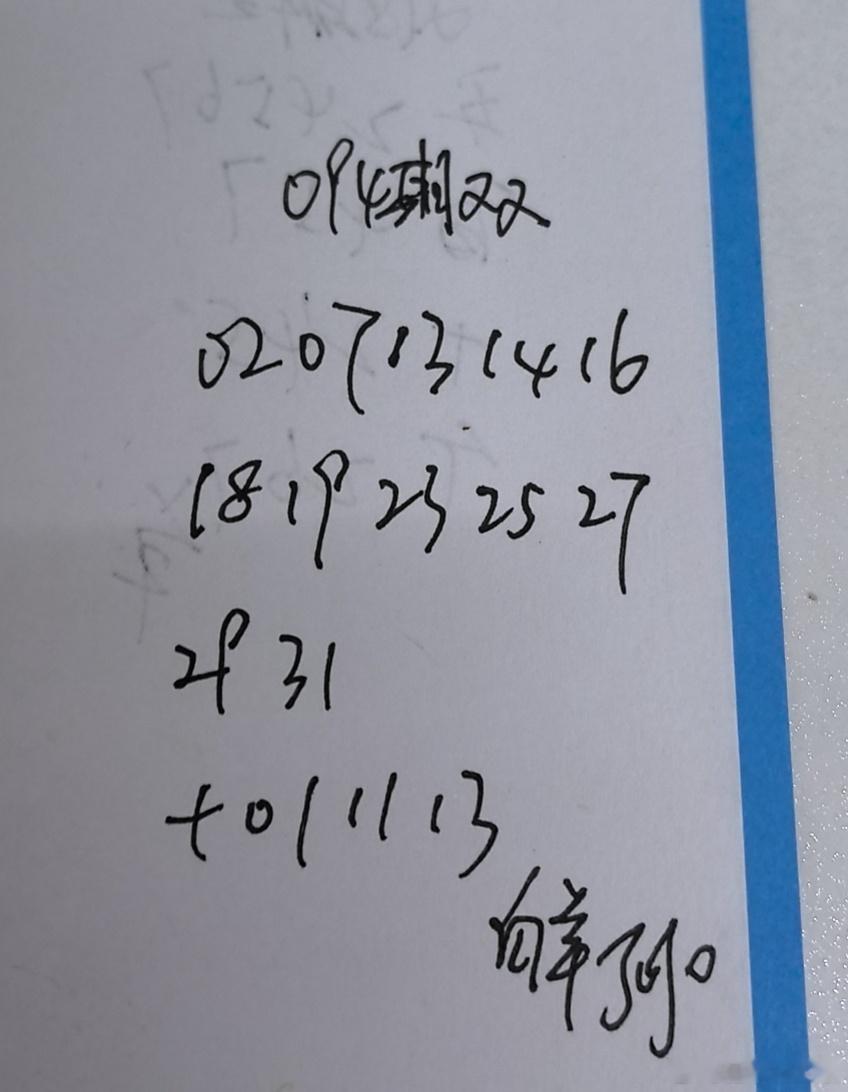 094期双
02 07 13 14 16
18 19 23 25 27
29 31
+ 01 11 13